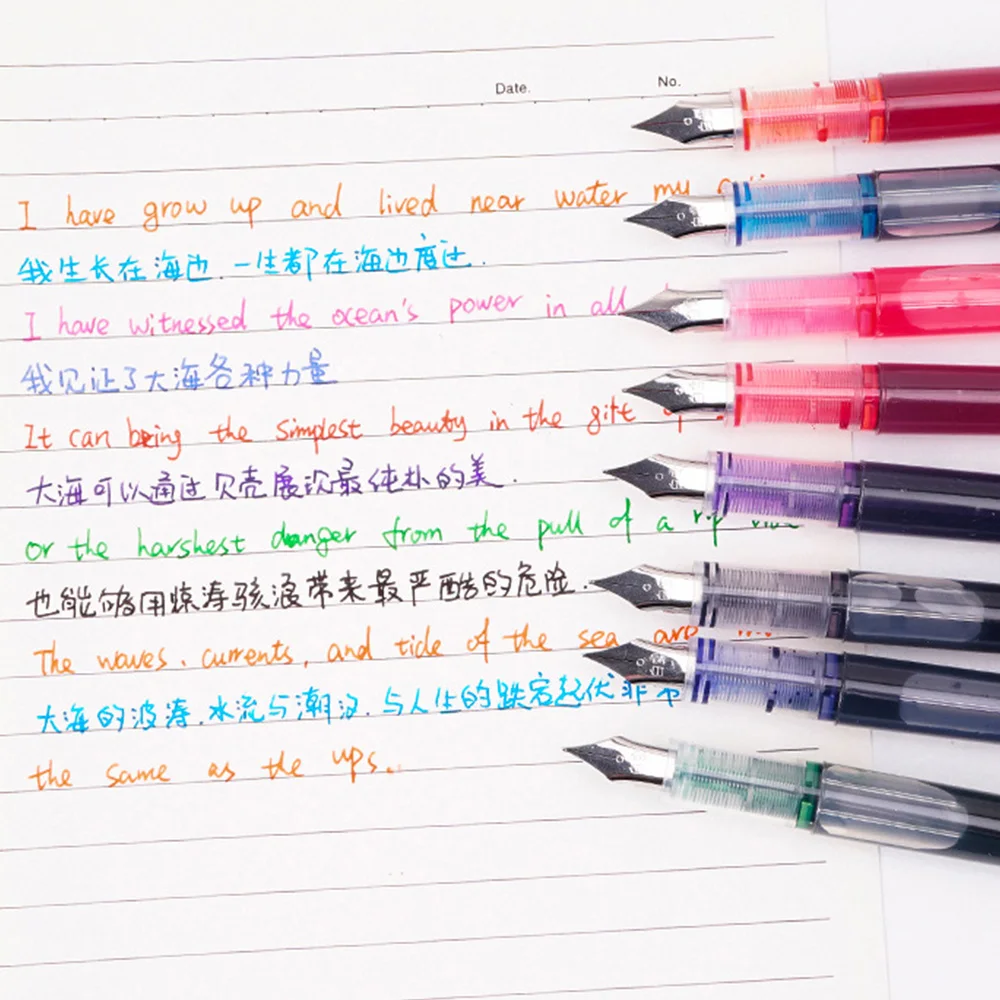 Date. No.
I have grow up and lived near water my
我生长在海边.一生都在海边度过.
I have witnessed the ocean's power in all
我见证了大海各种力量
It can being the simplest beauty in the gift
大海可以通过贝壳展现最纯朴的美.
or the harshest danger from the pull of a rip
也能够用惊涛骇浪带来最严酷的危险.
The waves. currents, and tide of the sea are
大海的波涛.水流与潮汐.与人生的跌宕起伏非
the same as the ups.